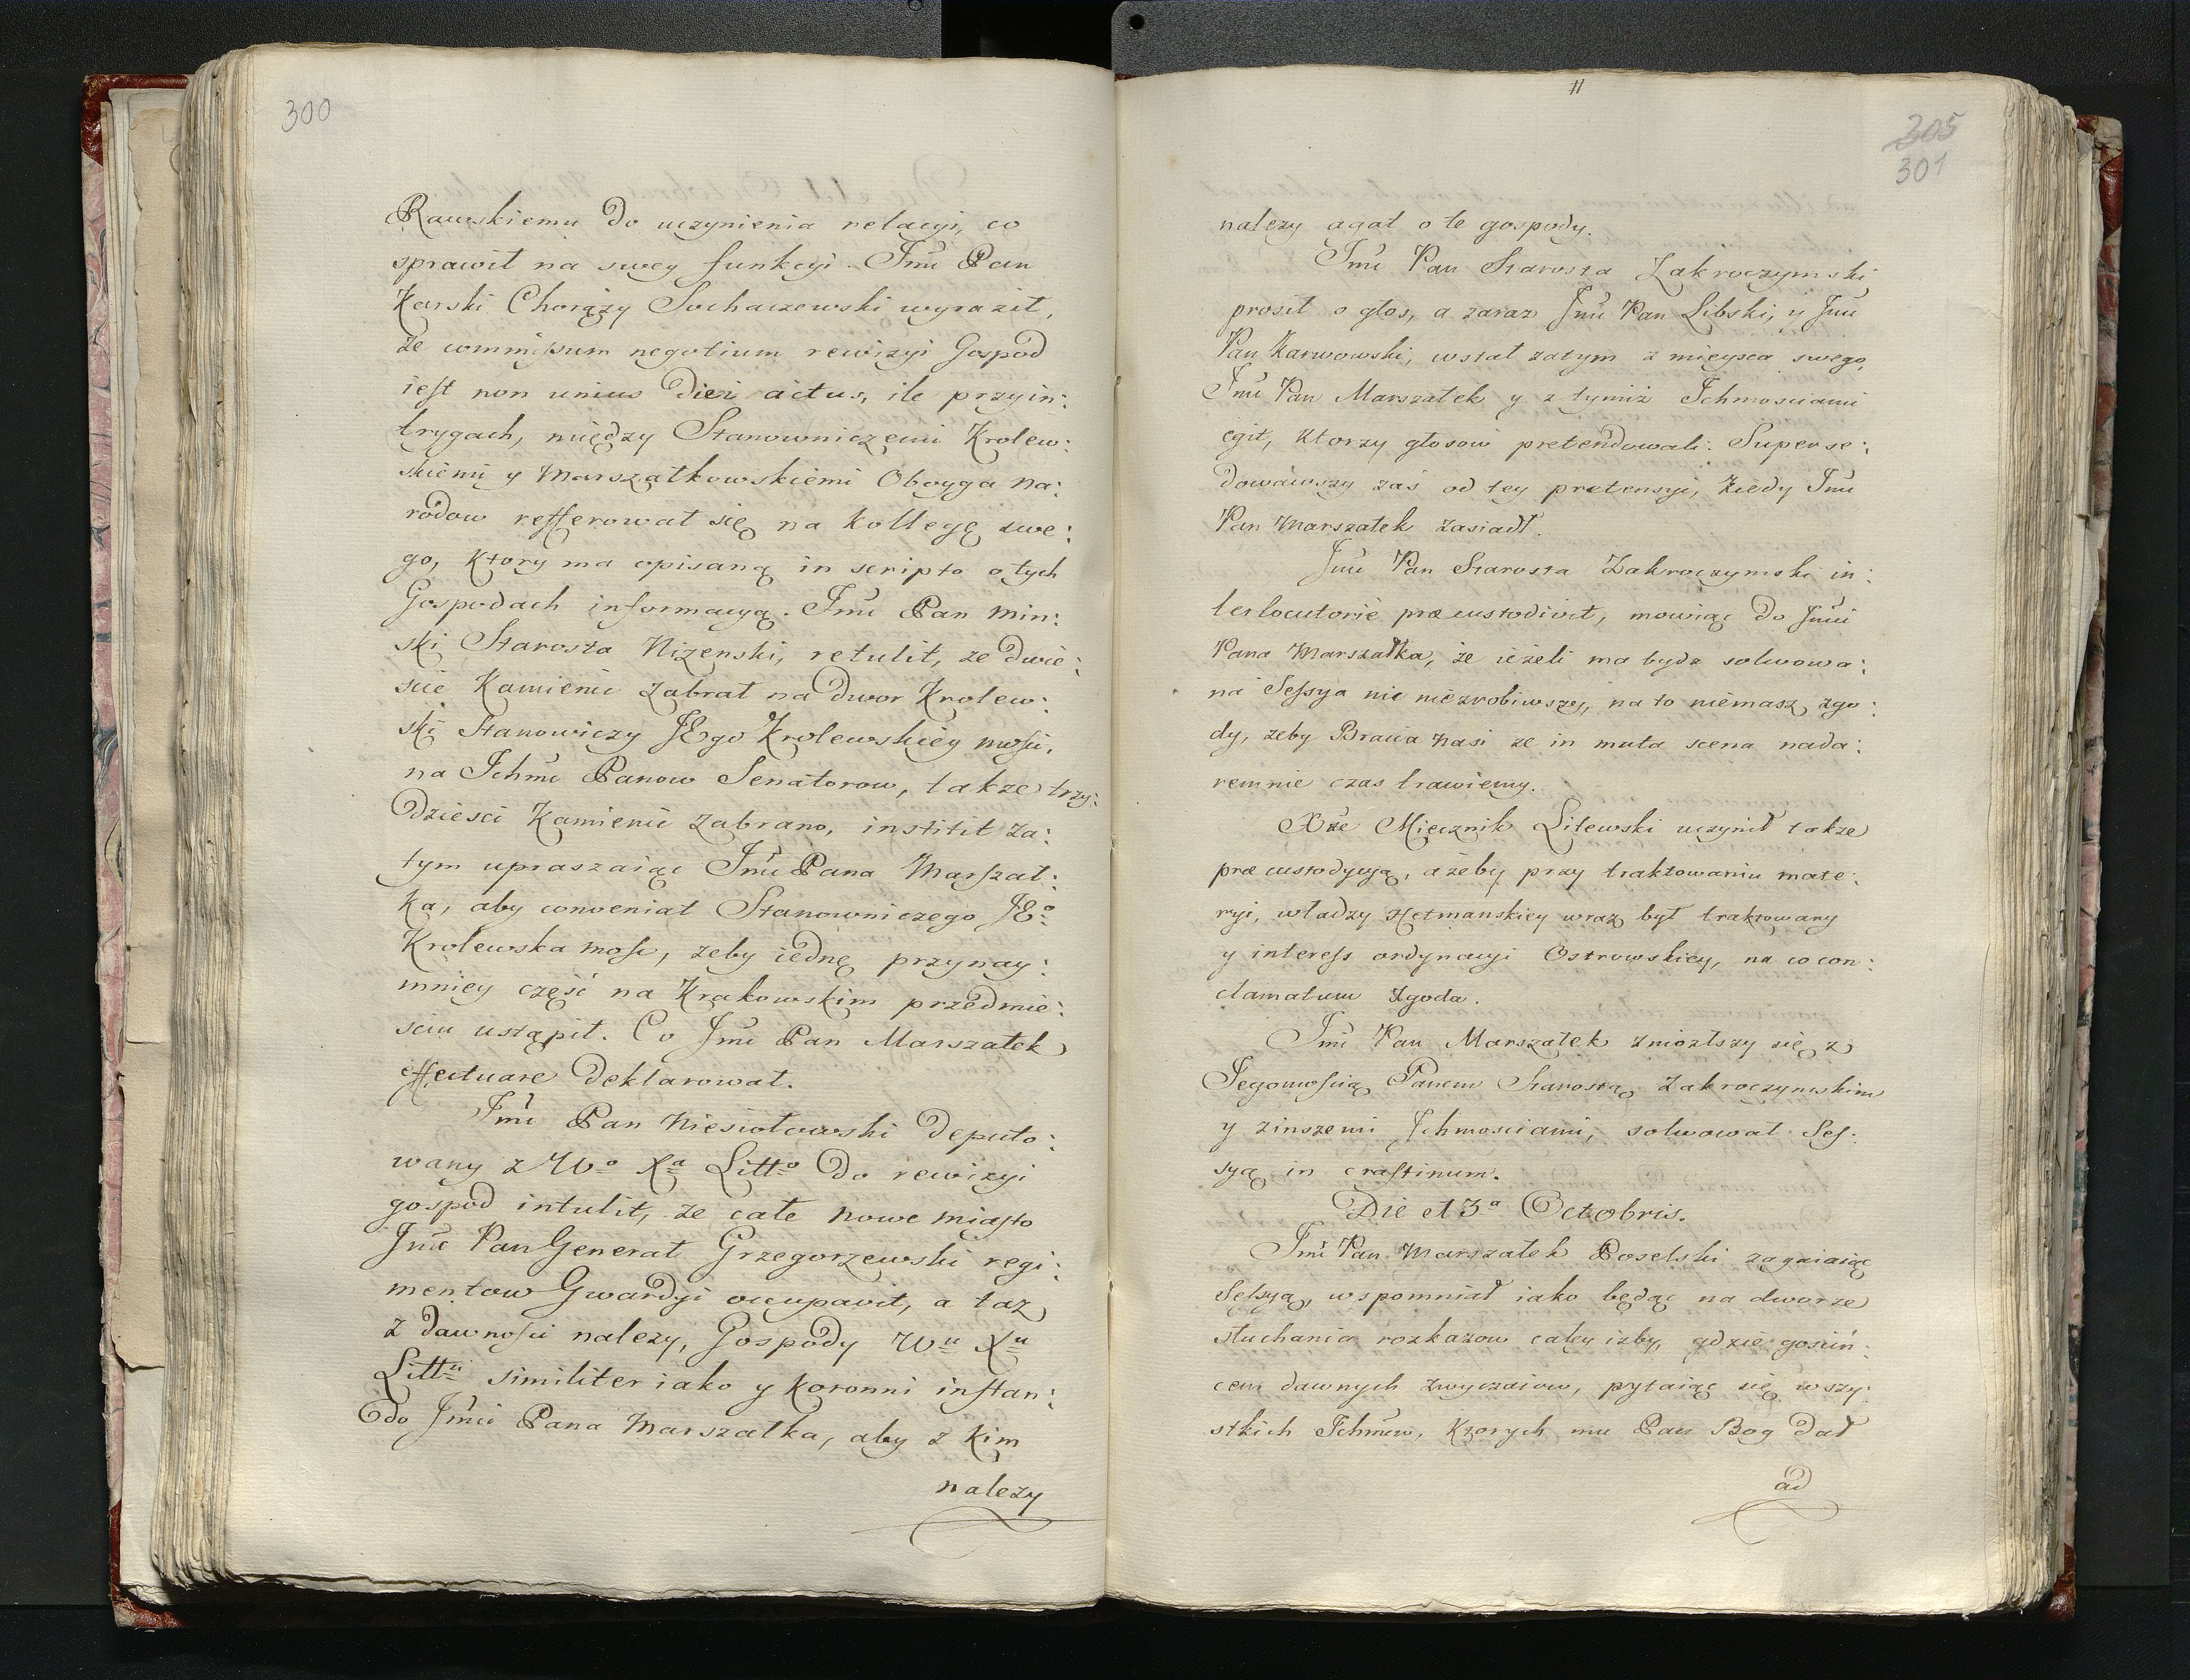 300
Rawskiemu do uczynienia relacyi, co
sprawił na swey funkcyi. Jmć Pan
Karski Chorąży Sochaczewski wyraził,
że commissum negotium rewizyi Gospod
iest non unius diei actus, ile przyin:
trygach, między Stanowniczemi Krolew:
skiemi y Marszałkowskiemi Oboyga Na:
rodow refferował się na Kollegę swe:
go, ktory ma opisaną in scripto o tych
Gospodach informacyą. Jmć Pan Min:
ski Starosta Nizenski, retulit, ze dwie:
scie Kamienic zabrał na dwor Krolew:
ski Stanowiczy JEgo Krolewskiey mości,
na Ichmć Panow Senatorow, takze trzy:
dziesci Kamienic zabrano, institit Za:
tym upraszaiąc Jmć Pana Marszał:
ka, aby conveniat Stanowniczego JEo
Krolewska mość, zeby iednę przynay:
mniey część na Krakowskim przedmie:
sciu ustąpił. Co Jmć Pan Marszałek
effectuare deklarował.
Jmć Pan Niesiołowski deputo:
wany z Wo Xa Litto do rewizyi
gospod intulit, ze całe nowe miasto
Jmć Pan Generał Grzegorzewski regi:
mentow Gwardyi occupavit, a taz
z dawności nalezy, Gospody Wu Xu
Littu similiter iako y Koronni instan:
do Jmći Pana Marszałka, aby z kim
nalezy
305
301
nalezy agat o te gospody.
Jmć Pan Starosta Zakroczymski
prosił o głos, a zaraz Jmć Pan Libski, y Jmć
Pan Karwowski, wstał zatym z mieysca swego,
Jmć Pan Marszałek y z tymiż Ichmosciami
egit, ktorzy głosow pretendowali. Superse:
dowawszy zaś od tey pretensyi, kiedy Jmć
Pan Marszałek zasiadł.
Jmć Pan Starosta Zakroczymski in:
terlocutorie præcustodivit, mowiąc do Jmći
Pana Marszałka, że ieżeli ma bydz solwowa:
na Sessya nic niezrobiwszy, na to niemasz zgo:
dy, zeby Bracia nasi ze in muta scena nada:
remnie czas trawiemy.
Xże Miecznik Litewski uczynił takze
præcustodycyą, ażeby przy traktowaniu mate:
ryi, władzy Hetmanskiey wraz był traktowany
y interess ordynacyi Ostrowskiey, na co con:
clamatum zgoda.
Jmć Pan Marszałek zniozłszy się z
Jegomością Panem Starostą Zakroczymskim
y zinszemi Ichmosciami, solwował Ses:
syą in crastinum.
Die 13a Octobris.
Jmć Pan Marszałek Poselski zagaiaiąc
Sessyą, wspomniał iako będąc na dworze
słuchania rozkazow całey izby, gdzie gosciń:
cem dawnych zwyczaiow, pytaiąc się wszy:
stkich Ichmciow, ktorych mu Pan Bog dał
ad